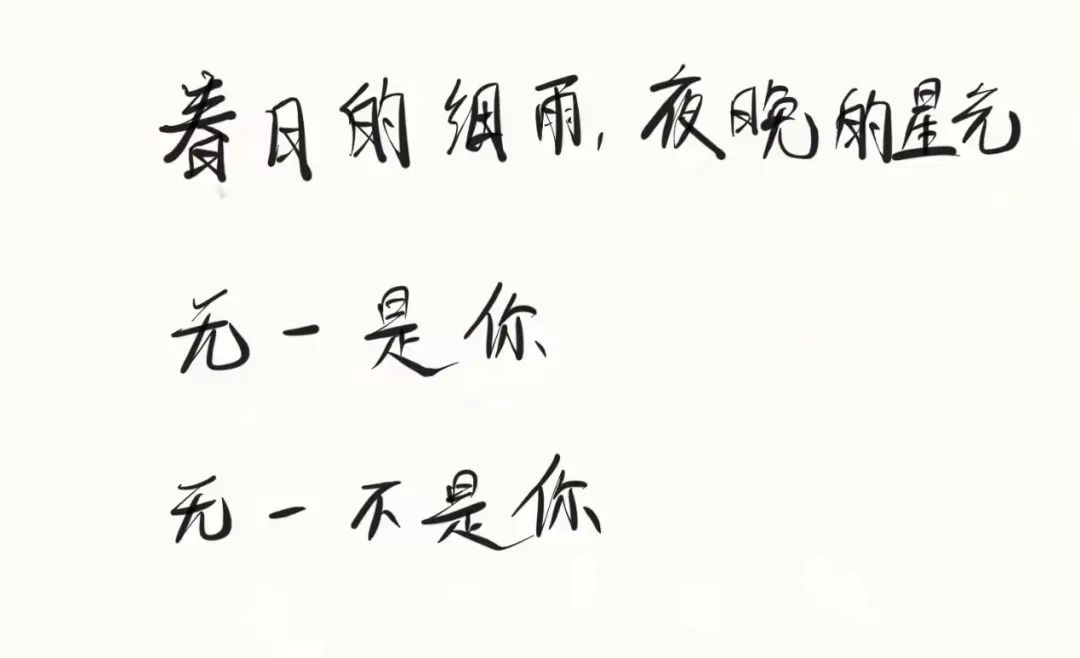 春日的细雨,夜晚的星光
无一是你
无一不是你